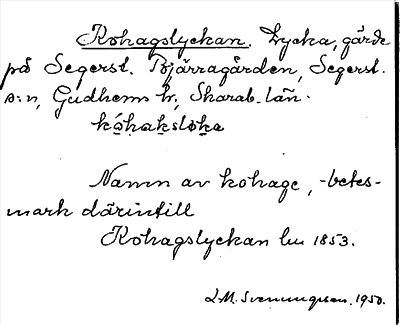 Kohagslyckan. Lycka, gärde
på Segerst. Bjärragården, Segerst.
s:n, Gudhems hr, Skarab. län.
kóhakslòka
Namn av kohage, -betes-
mark därintill
Kohagslyckan lm 1853.
L.M. Svenungsson. 1950.